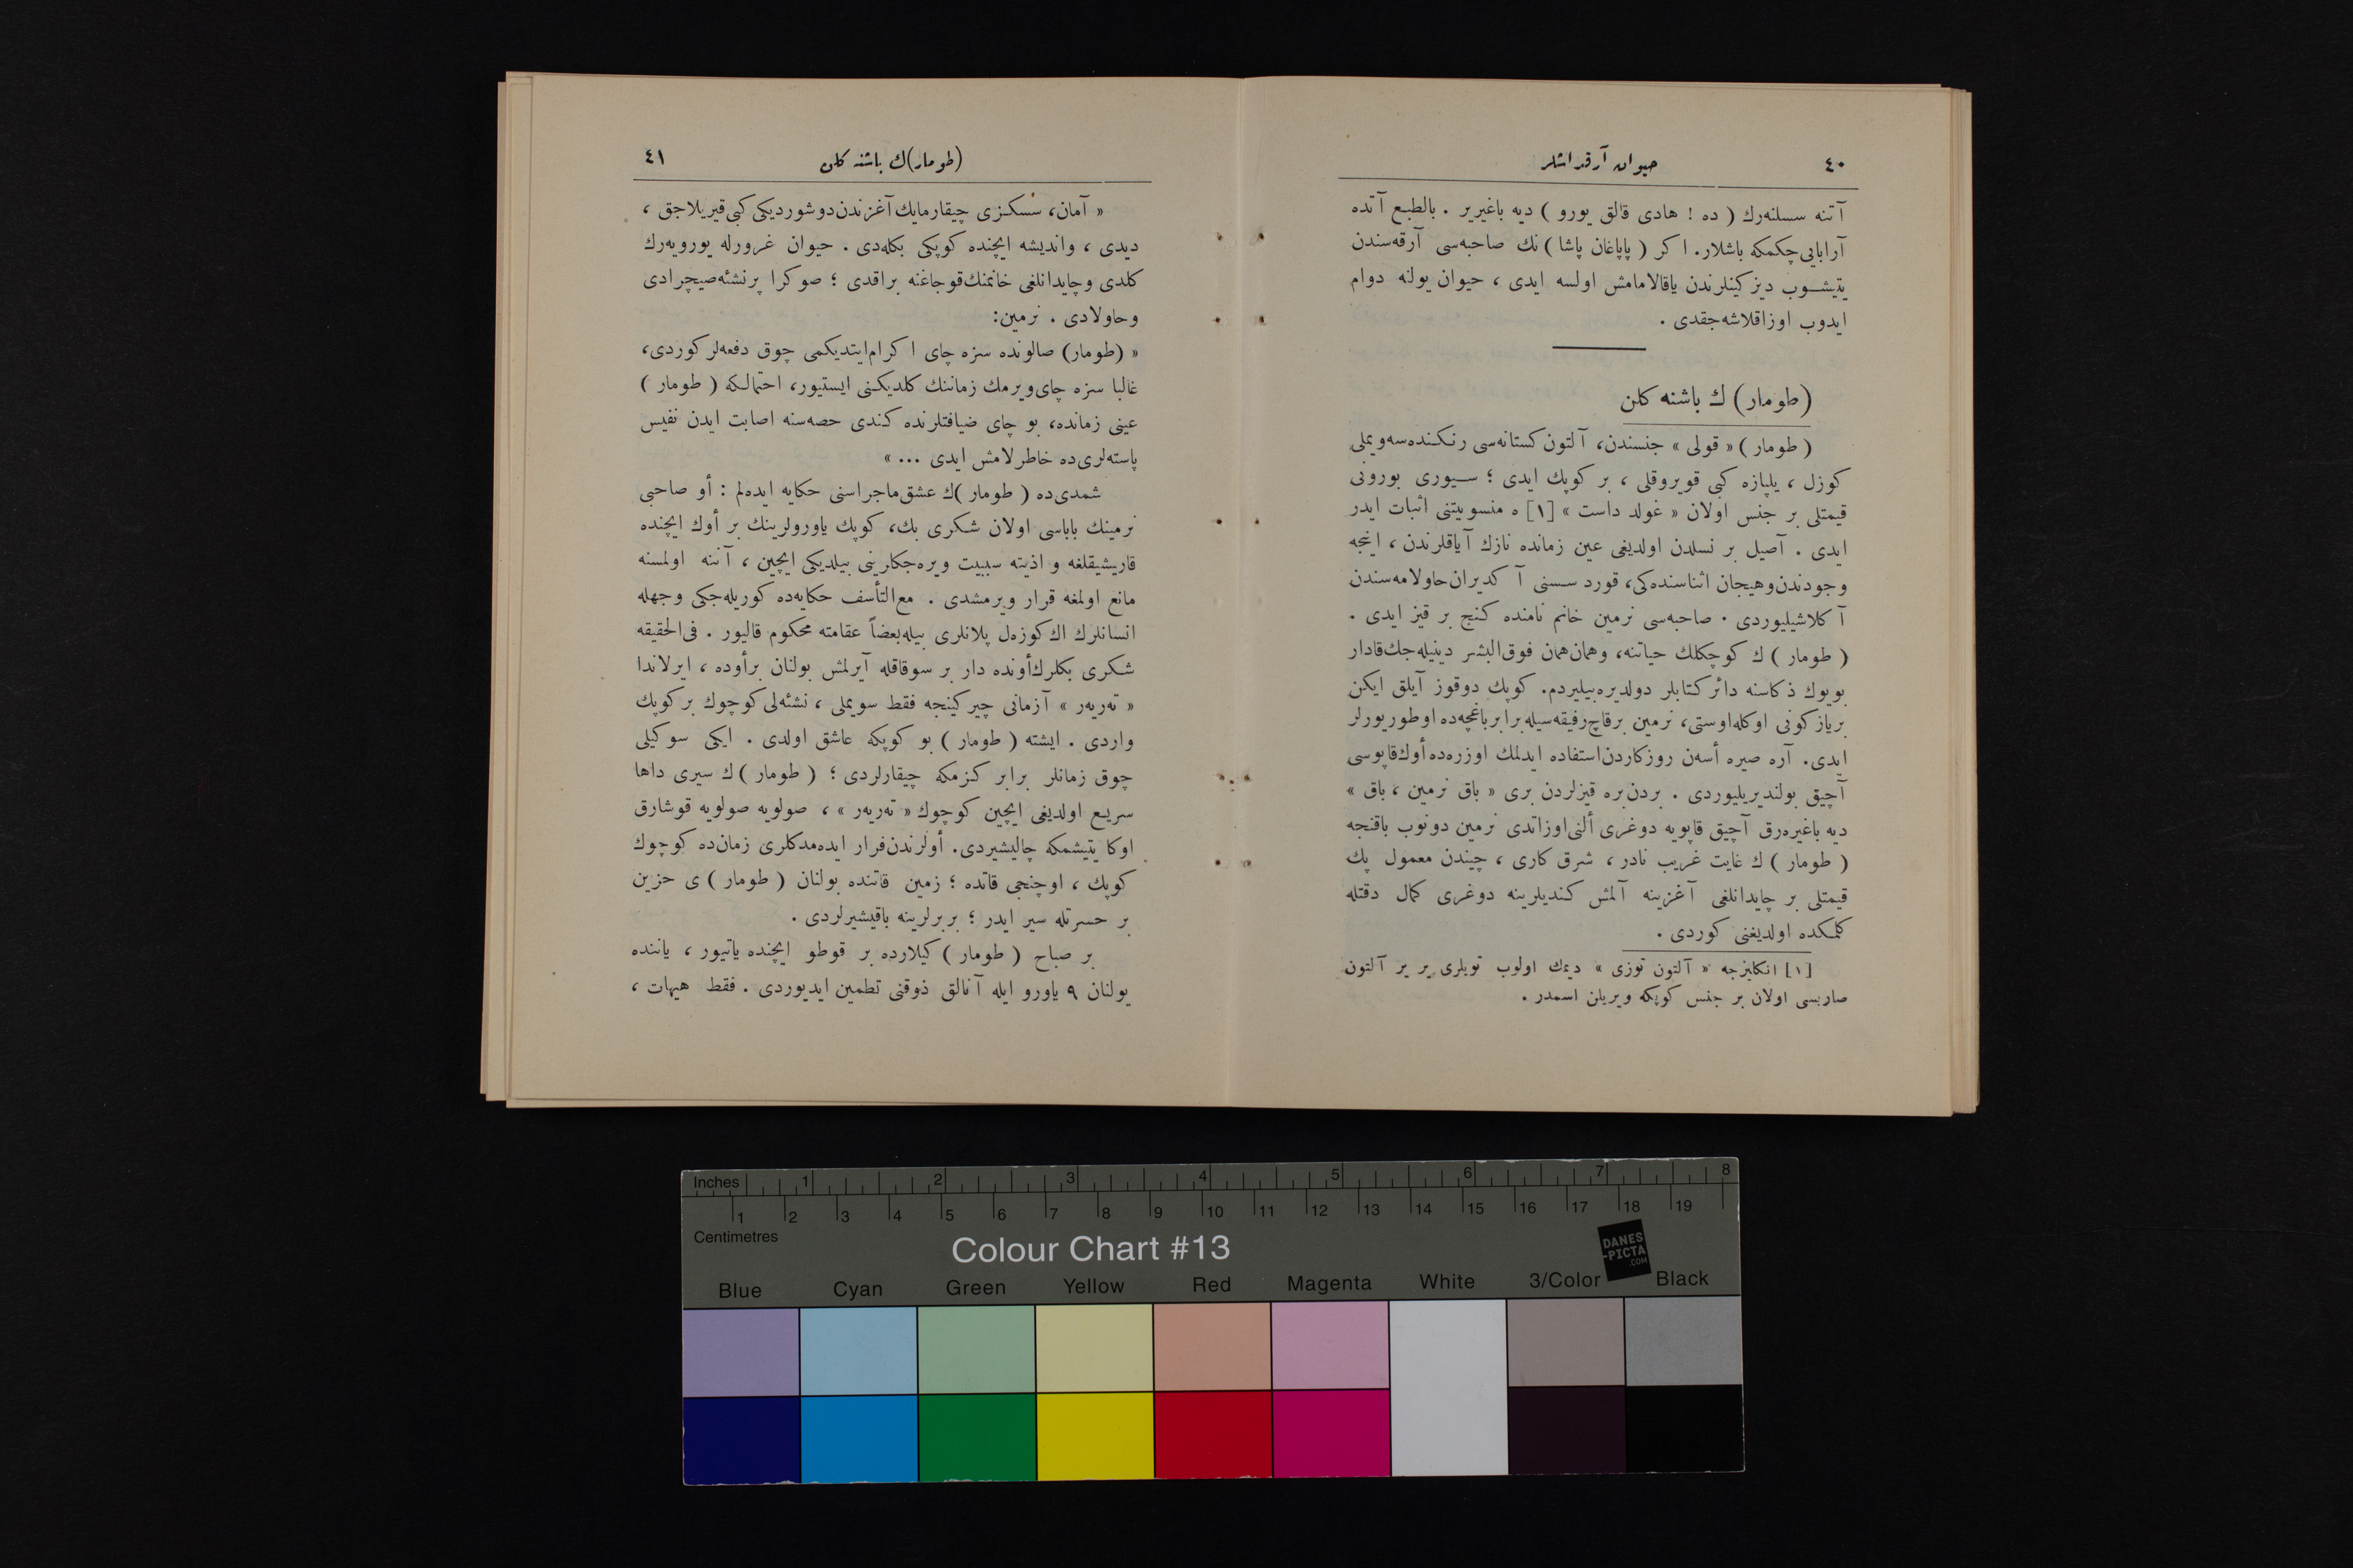 ٤٠
حيوان آرقداشلر
آتنه سسلنه‌رك ( ده ! هادى قالق يورو ) ديه باغيرير . بالطبع آتده
آرابايى چكمكه باشلار. اكر ( پاپاغان پاشا ) نك صاحبه‌سى آرقه‌سندن
يتيشوب ديزكينلرندن ياقالامامش اولسه ايدى ، حيوان يولنه دوام
ايدوب اوزاقلاشه‌جقدى .
(طومار) ك باشنه كلن
( طومار ) « قولى » جنسندن، آلتون كستانه‌سى رنكنده سه‌ويملى
كوزل ، يلپازه كبى قويروقلى ، بر كوپك ايدى ؛ سيورى بورونى
قيمتلى بر جنس اولان « غولد داست » [١] ه منسوبيتنى اثبات ايدر
ايدى . آصيل بر نسلدن اولديغى عين زمانده نازك آياقلرندن ، اينجه
وجودندن وهيجان اثناسنده‌كى، قورد سسنى آكديران حاولامه‌سندن
آكلاشيليوردى . صاحبه‌سى نرمين خانم نامنده كنج بر قيز ايدى .
( طومار ) ك كوچكلك حياتنه، وهمان همان فوق البشر دينيله‌جك قادار
بويوك ذكاسنه دائر كتابلر دولديره‌بيليردم. كوپك دوقوز آيلق ايكن
برياز كونى اوكله اوستى، نرمين برقاچ رفيقه‌سيله برابر باغچه‌ده اوطوريورلر
ايدى. آره صيره أسه‌ن روزكاردن استفاده ايدلمك اوزره‌ده أوك قاپوسى
آچيق بولنديريليوردى . بردن بره قيزلردن برى « باق نرمين ، باق »
ديه باغيره‌رق آچيق قاپويه دوغرى ألنى اوزاتدى نرمين دونوب باقنجه
( طومار ) ك غايت غريب نادر ، شرق كارى ، چيندن معمول پك
قيمتلى بر چايدانلغى آغزينه آلمش كنديلرينه دوغرى كمال دقتله
كلمكده اولديغنى كوردى .
[١] انكليزجه « آلتون توزى » ديمك اولوب تويلرى ير ير آلتون
صاريسى اولان بر جنس كوپكه ويريلن اسمدر .
(طومار)ك باشنه كلن
٤١
« آمان، سسكزى چيقارمايك آغزندن دوشورديكى كبى قيريلاجق ،
ديدى ، وانديشه ايچنده كوپكى بكله‌دى . حيوان غرورله يورويه‌رك
كلدى وچايدانلغى خانمنك قوجاغنه براقدى ؛ صوكرا پرنشئه صيچرادى
وحاولادى . نرمين:
« (طومار) صالونده سزه چاى اكرام ايتديكمى چوق دفعه‌لر كوردى،
غالبا سزه چاى ويرمك زماننك كلديكنى ايستيور، احتمالكه ( طومار )
عينى زمانده، بو چاى ضيافتلرنده كندى حصه‌سنه اصابت ايدن نفيس
پاسته‌لرى‌ده خاطرلامش ايدى ... »
شمدى‌ده ( طومار )ك عشق ماجراسنى حكايه ايده‌لم : أو صاحبى
نرمينك باباسى اولان شكرى بك، كوپك ياورولرينك بر أوك ايچنده
قاريشيقلغه و اذيته سببيت ويره‌جكلرينى بيلديكى ايچين ، آننه اولمسنه
مانع اولمغه قرار ويرمشدى . مع‌التأسف حكايه‌ده كوريله‌جكى وجهله
انسانلرك اك كوزه‌ل پلانلرى بيله بعضاً عقامته محكوم قاليور . فى‌الحقيقه
شكرى بكلرك أونده دار بر سوقاقله آيرلمش بولنان برأوده ، ايرلاندا
« ته‌ريه‌ر » آزمانى چيركينجه فقط سويملى ، نشئه‌لى كوچوك بر كوپك
واردى . ايشته ( طومار ) بو كوپكه عاشق اولدى . ايكى سوكيلى
چوق زمانلر برابر كزمكه چيقارلردى ؛ ( طومار ) ك سيرى داها
سريع اولديغى ايچين كوچوك « ته‌ريه‌ر » ، صولويه صولويه قوشارق
اوكا يتيشمكه چاليشيردى. أولرندن فرار ايده‌مدكلرى زمان‌ده كوچوك
كوپك ، اوچنجى قاتده ؛ زمين قاتنده بولنان ( طومار ) ى حزين
بر حسرتله سير ايدر ؛ بربرلرينه باقيشيرلردى .
بر صباح ( طومار ) كيلارده بر قوطو ايچنده ياتيور ، ياننده
بولنان ٩ ياورو ايله آنالق ذوقنى تطمين ايديوردى . فقط هيهات ،
Inches 1 2 3 4 5 6 7 8
1 2 3 4 5 6 7 8 9 10 11 12 13 14 15 16 17 18 19
Centimetres
Colour Chart #13
DANES
-PICTA
.COM
Blue Cyan Green Yellow Red Magenta White 3/Color Black